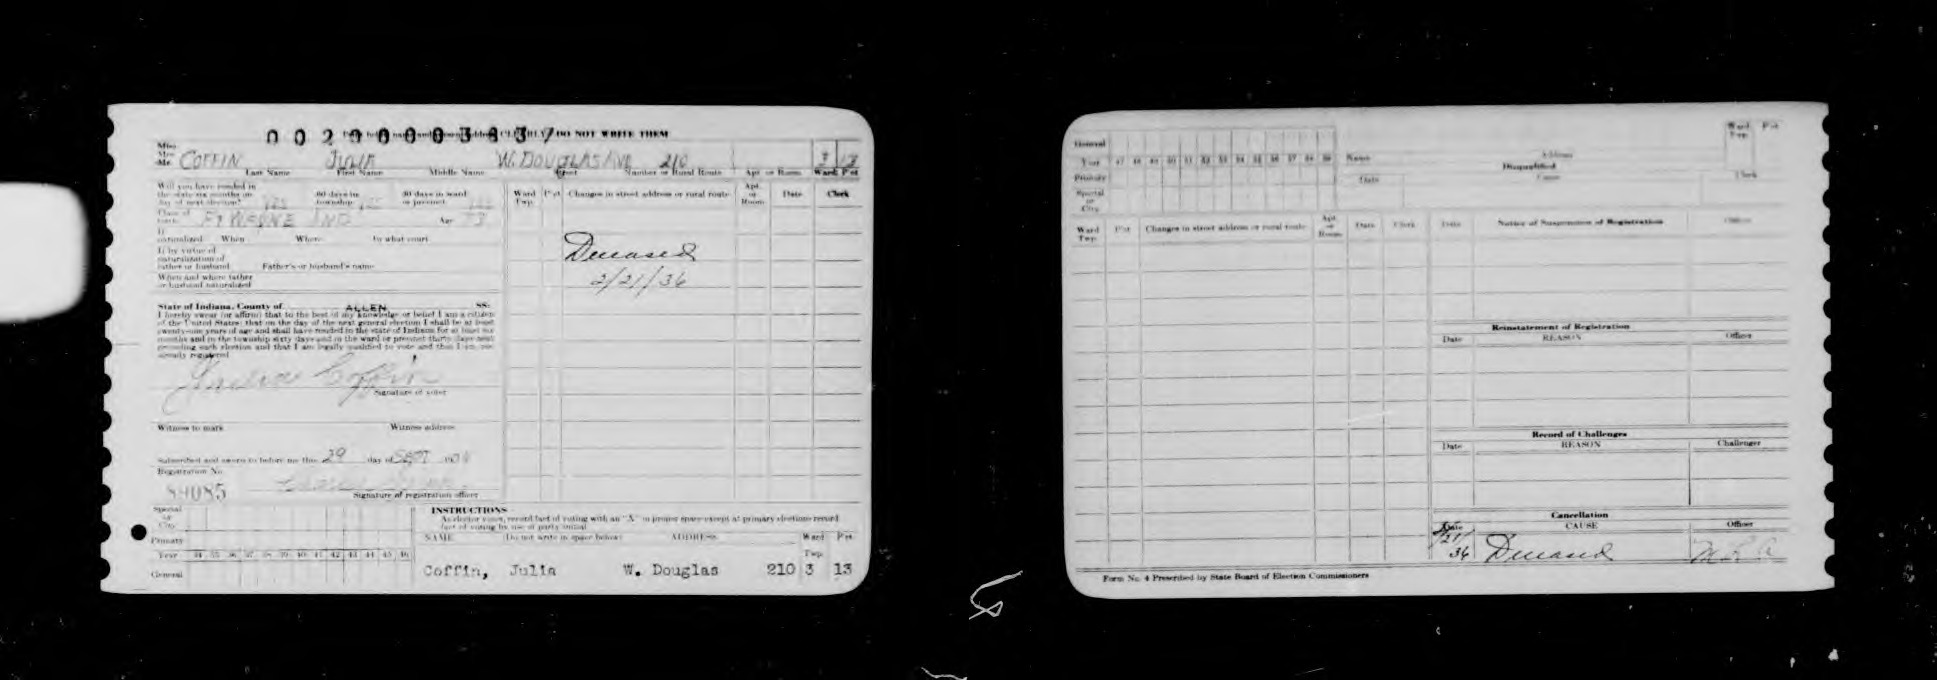 DO NOT WRITE THEM
Miss
Mrs.
Mr. COFFIN JULIA W. DOUGLAS AVE 210 3 13
Last Name First Name Middle Name Street Number or Rural Route Apt. or Room Ward Pct
Will you have resided in
the state six months on 60 days in 30 days in ward
day of next election? YES township or precinct
Ward Twp. Pct Changes in street address or rural route Apt. or Room Date Clerk
Place of
birth FT WAYNE IND Age 73
If
naturalized When Where In what court
If by virtue of
naturalization of
father or husband Father's or husband's name
When and where father
or husband naturalized
Deceased
2/21/36
State of Indiana, County of ALLEN SS:
I hereby swear (or affirm) that to the best of my knowledge or belief I am a citizen
of the United States; that on the day of the next general election I shall be at least
twenty-one years of age and shall have resided in the state of Indiana for at least six
months and in the township sixty days and in the ward or precinct thirty days next
preceding such election and that I am legally qualified to vote and that I am not
already registered
Julia Coffin
Signature of voter
Witness to mark Witness address
Subscribed and sworn to before me this 29 day of SEPT
Registration No.
89085
Signature of registration officer
Special
or
City
Primary
Year 34 35 36 37 38 39 40 41 42 43 44 45 46
General
INSTRUCTIONS
As elector votes, record fact of voting with an "X" in proper space except at primary elections record
fact of voting by use of party initial
NAME (Do not write in space below) ADDRESS Ward Twp Pct
Coffin, Julia W. Douglas 210 3 13
General
Year 47 48 49 50 51 52 53 54 55 56 57 58 59
Primary
Special
or
City
Name Address
Disqualified
Date Cause Clerk
Ward Twp. Pct
Ward Twp. Pct Changes in street address or rural route Apt. or Room Date Clerk
Date Notice of Suspension of Registration Officer
Reinstatement of Registration
Date REASON Officer
Record of Challenges
Date REASON Challenger
Cancellation
Date CAUSE Officer
2/21/36 Deceased
Form No. 4 Prescribed by State Board of Election Commissioners